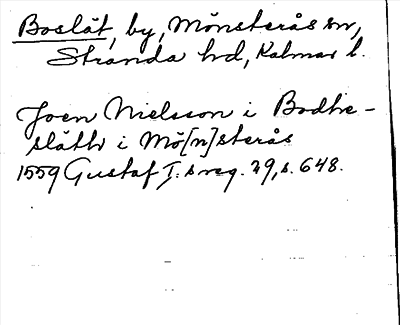 Boslät, by, Mönsterås sn,
Stranda hd, Kalmar l.
Joen Nielsson i Bodhe-
släthr i Mö[n]sterås
1559 Gustaf I:s reg. 29, s. 648.